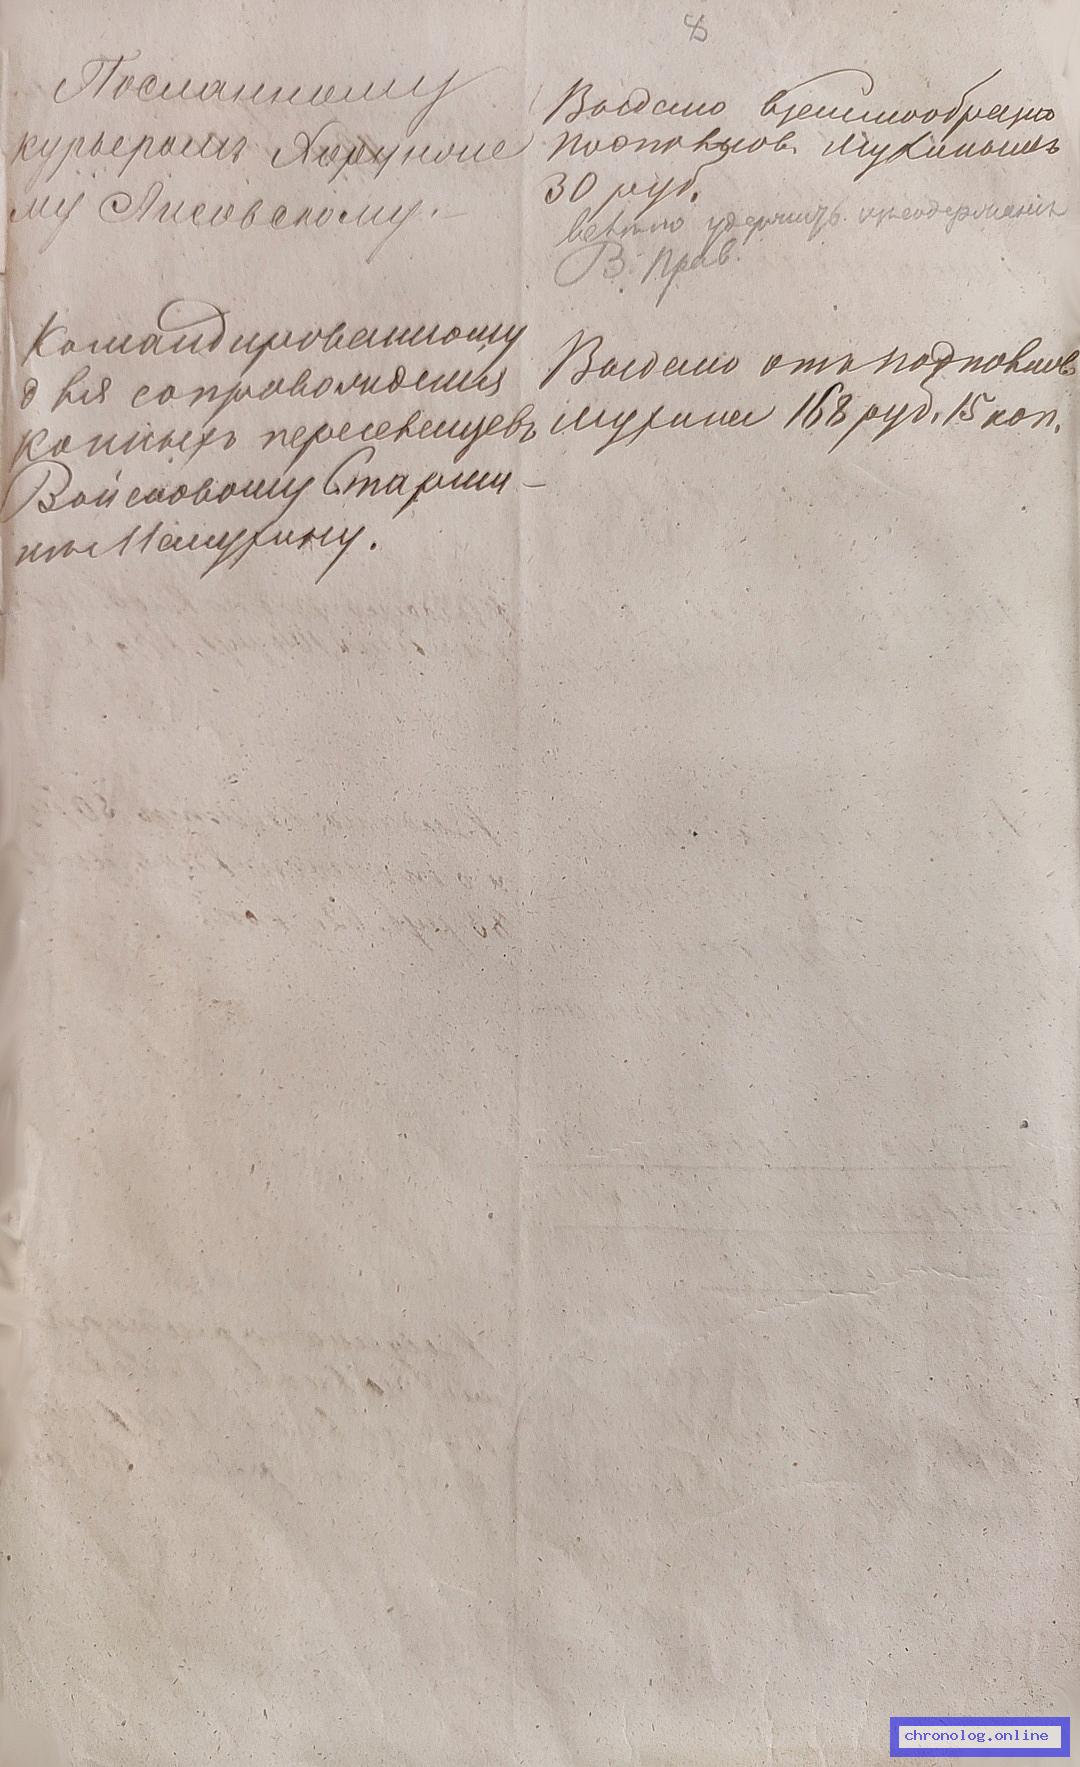 8
Посланному
курьеромъ Хорунже
му Лисовскому.
Выдано въ
подполков. Мухинымъ
30 руб.
велено удержать из содержания
В. Прав.
Командированному
для сопровождения
конныхъ переселенцевъ
Войсковому Старши-
не Мамухину.
Выдано отъ подполков
Мухина 168 руб. 15 коп.
chronolog.online